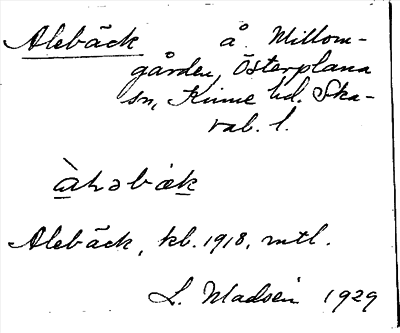 Alebäck å Millom-
gården, Österplana
sn, Kinne hd. Ska-
rab. l.
àləbäk
Alebäck, kb. 1918, mtl.
L. Madsén 1929